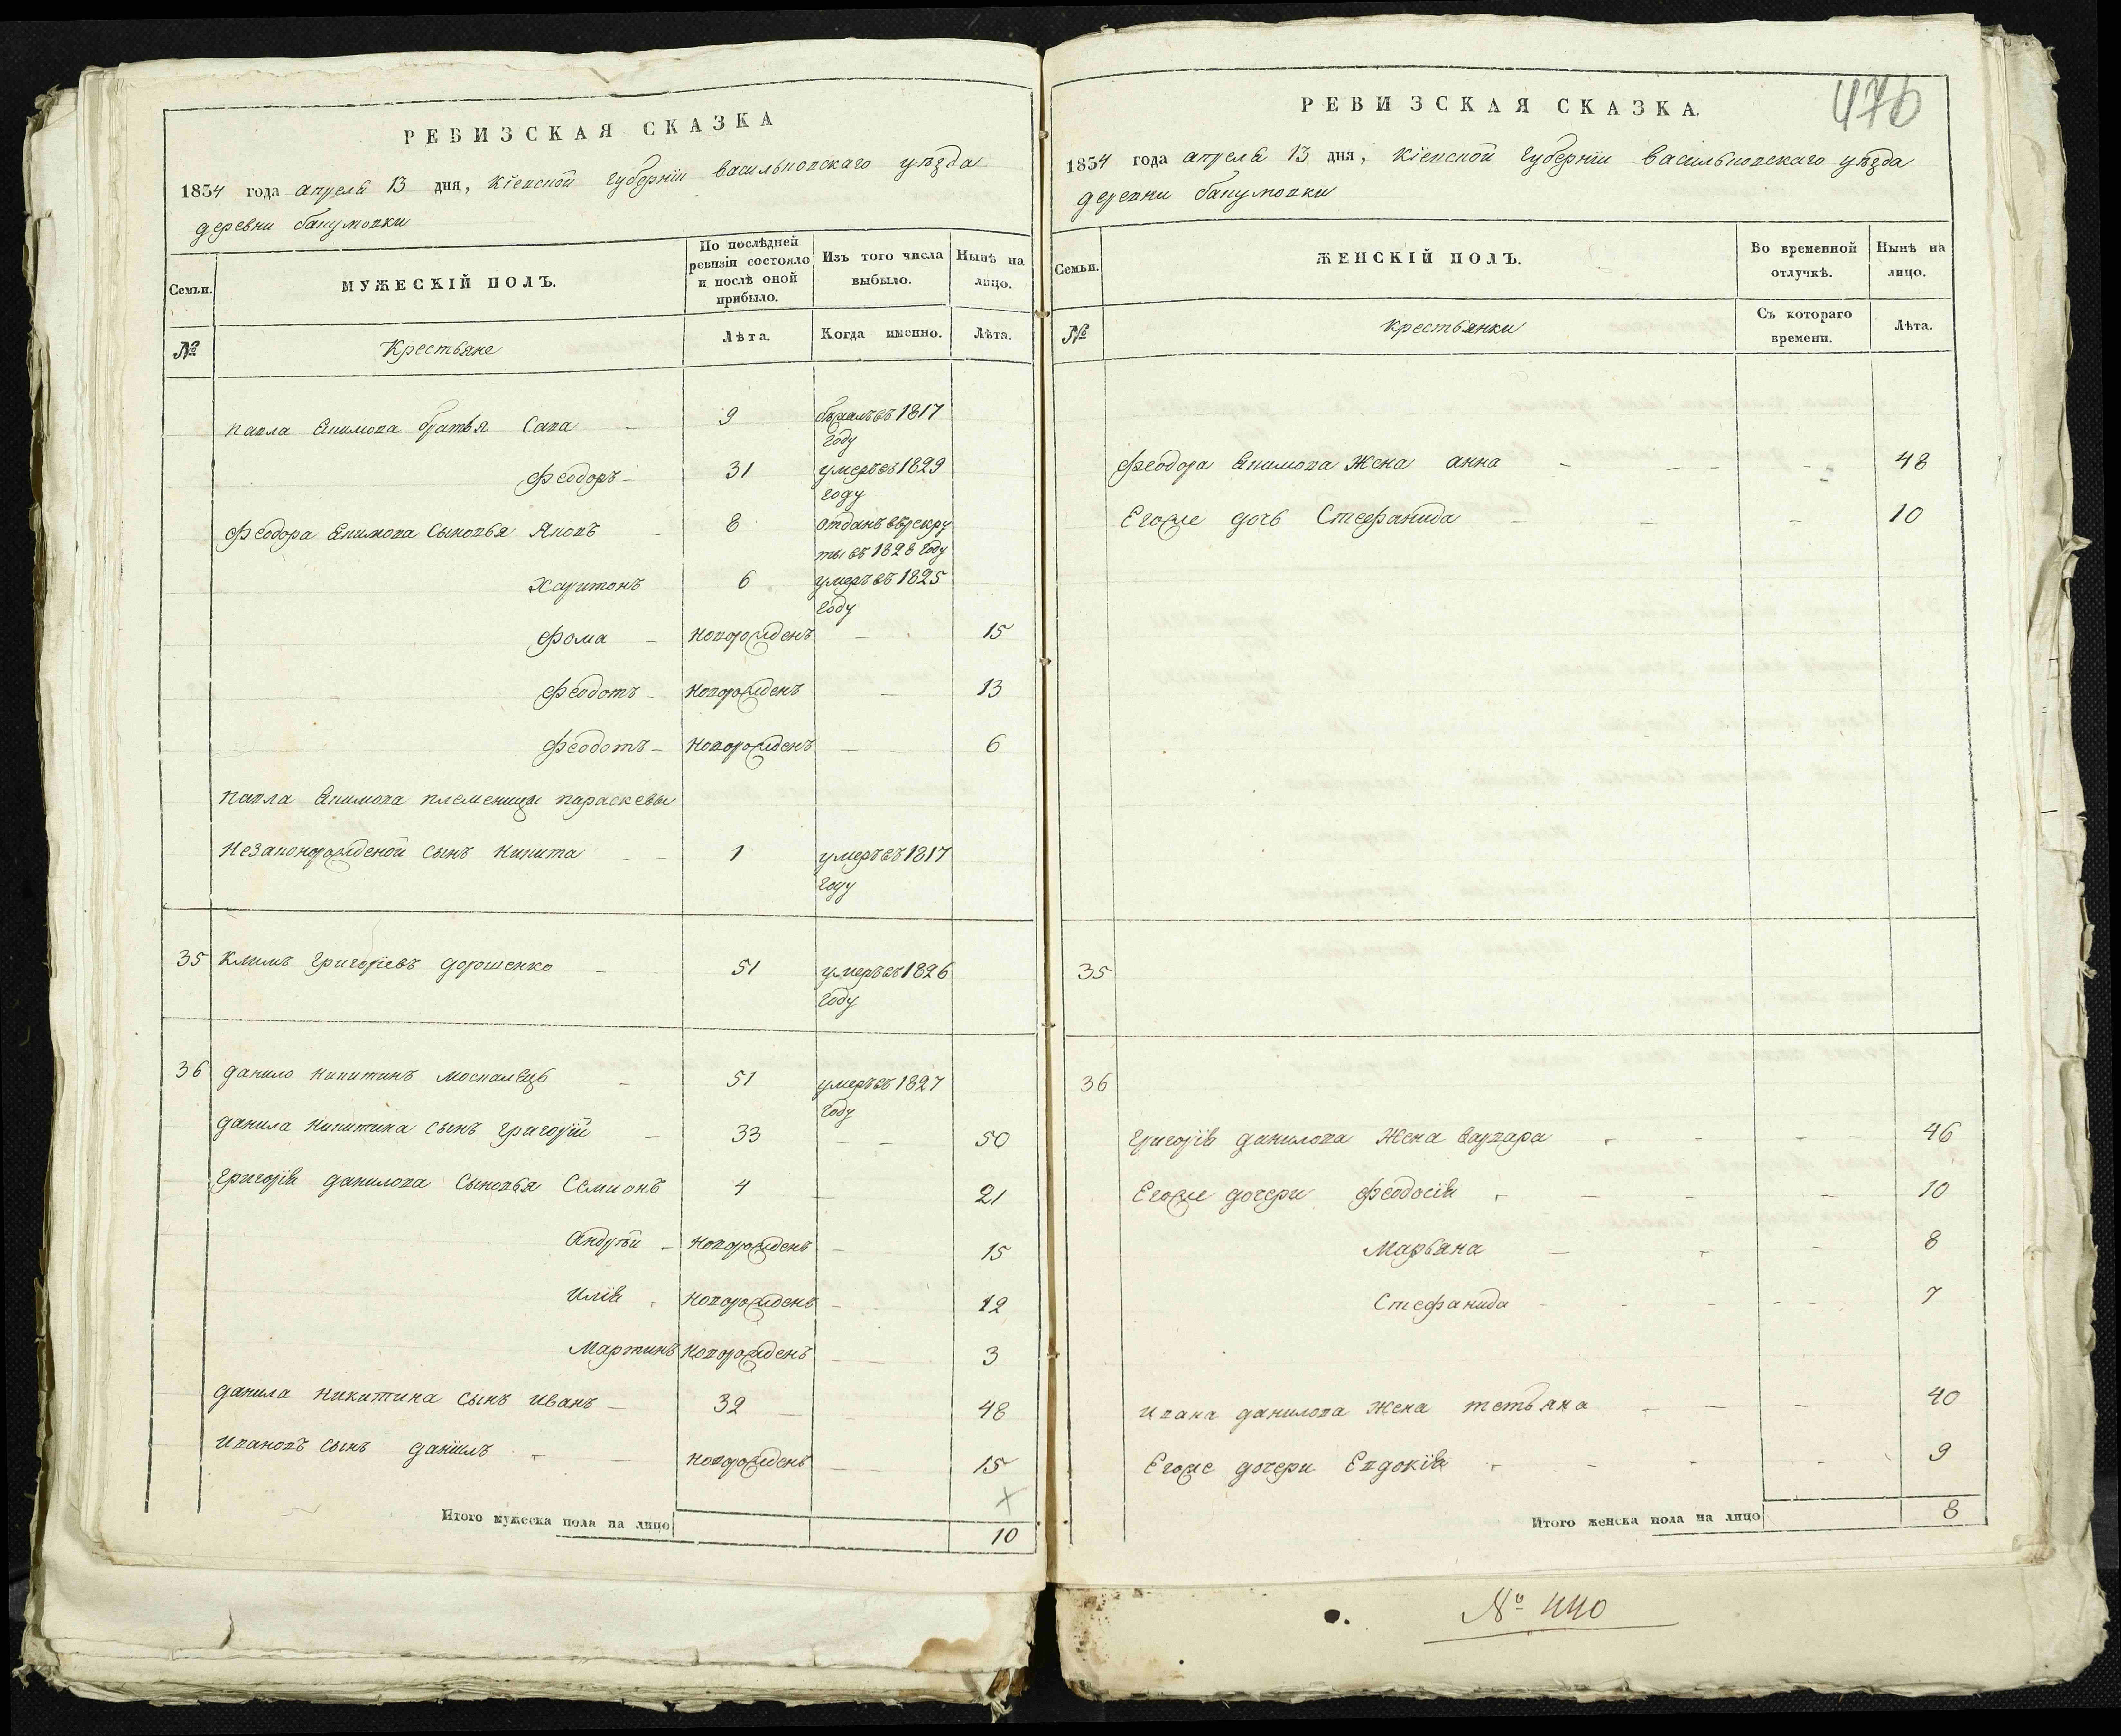 РЕВИЗСКАЯ СКАЗКА
1834 года апреля 13 дня, Кіевской губерніи васильковскаго уѣзда
деревни
Семьи. МУЖЕСКІЙ ПОЛЪ. По послѣдней ревизіи состояло и послѣ оной прибыло. Изъ того числа выбыло. Нынѣ на лицо.
№ Крестьяне Лѣта. Когда именно. Лѣта.
павла Екимова братья Сава – 9 бѣжалъ въ 1817
году
Феодоръ – 31 умеръ въ 1829
году
Феодора Екимова Сыновья Яковъ – 8 отданъ в рекру
ты въ 1828 году
Харитонъ 6 умеръ въ 1825
году
Фома – новорожденъ – 15
Феодотъ – новорожденъ – 13
Феодотъ – новорожденъ – 6
павла Екимова племеницы параскевы
незаконорожденой сынъ никита – – 1 умеръ въ 1817
году
35 Климъ григорiевъ дорошенко – 51 умеръ въ 1826
году
36 данило никитинъ москалець – 51 умеръ въ 1827
году
данила никитина сынъ григорій – 33 – – 50
григорія данилова сыновья Семионъ 4 – 21
Андрѣй – новорожденъ – 15
Илія – новорожденъ – 12
Мартинъ новорожденъ – – 3
данила никитина сынъ иванъ – 32 – 48
ивановъ сынъ даніилъ – – новорожденъ – – 15
Итого мужеска пола на лицо 10
РЕВИЗСКАЯ СКАЗКА.
476
1834 года апреля 13 дня, Кіевской губерніи васильковскаго уѣзда
деревни
Семьи. ЖЕНСКІЙ ПОЛЪ. Во временной отлучкѣ. Нынѣ на лицо.
№ крестьянки Съ котораго времени. Лѣта.
Феодора Екимова жена анна – – – – 48
Егоже дочь Стефанида – – – 10
35
36
григорія данилова жена варвара – – – – 46
Егоже дочери Феодосія – – – – 10
Марьяна – – – 8
Стефанида – – – – – 7
ивана данилова жена тетьяна – – – 40
Егоже дочери Евдокія – – – – 9
Итого женска пола на лицо 8
№ 440